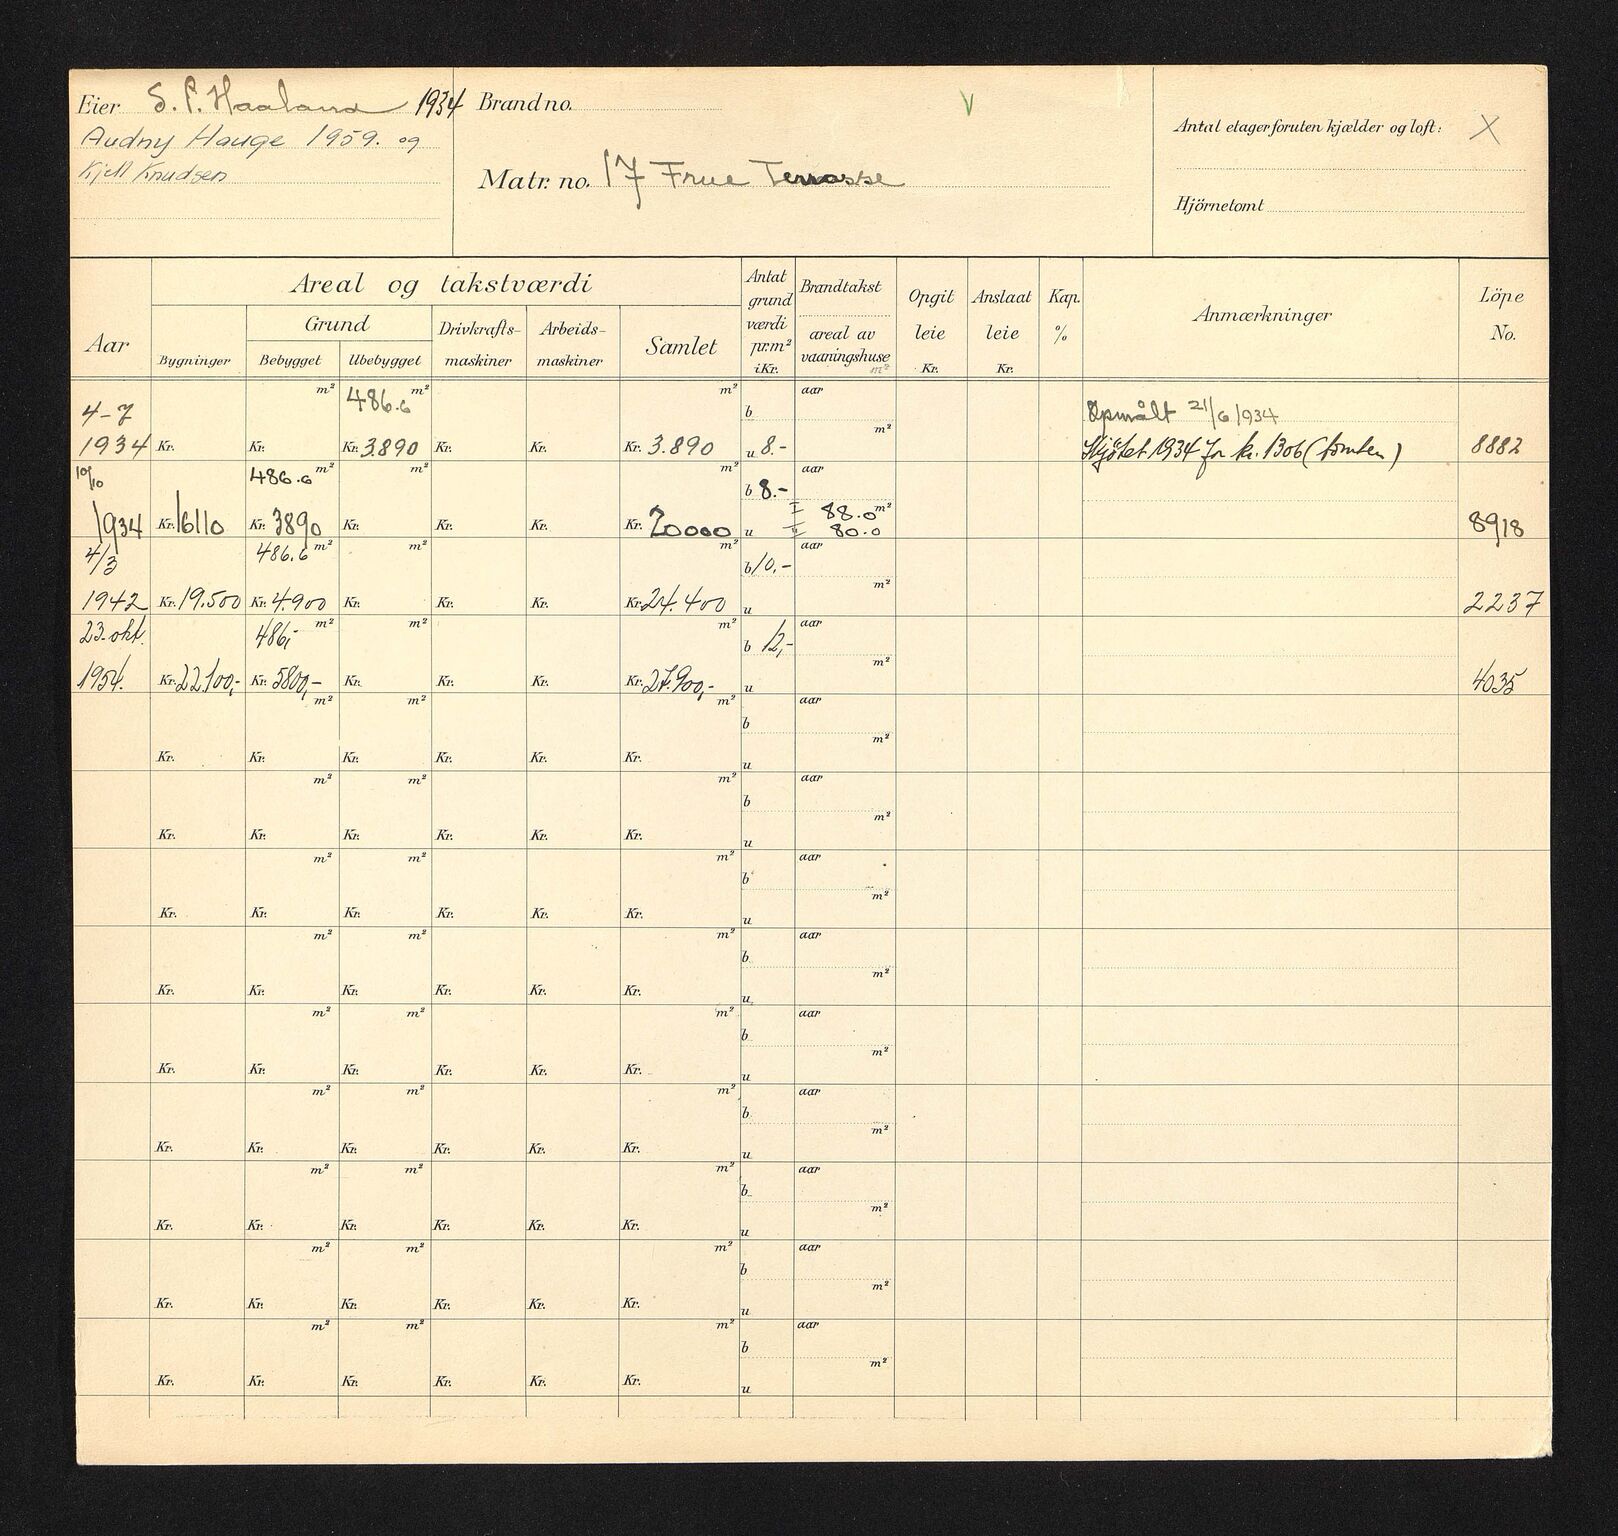 Eier S. P. Haaland 1934
Audny Hauge 1959. og
Kjell Knudsen
Brand no.
Matr. no. 17 Frue Terrasse
Antal etager foruten kjælder og loft: X
Hjörnetomt
Aar
Areal og takstværdi
Bygninger
Grund
Bebygget
Ubebygget
Drivkrafts-
maskiner
Arbeids-
maskiner
Samlet
Antal
grund
værdi
pr. m²
i Kr.
Brandtakst
areal av
vaaningshuse
m²
Opgit
leie
Kr.
Anslaat
leie
Kr.
Kap.
%
Anmærkninger
Löpe
No.
4-7 m² 486.6 m² m² b aar Opmålt 21/6 1934
1934 Kr. Kr. Kr. 3.890 Kr. Kr. Kr. 3.890 u 8.- m² Skjötet 1934 for kr. 1306 (tomten) 8882
10/10 486.6 m² m² m² b 8.- aar I 88.0 m²
1934 Kr. 16110 Kr. 3890 Kr. Kr. Kr. Kr. 20000 u II 80.0 8918
4/3 486.6 m² m² m² b 10,- aar
1942 Kr. 19.500 Kr. 4.900 Kr. Kr. Kr. Kr. 24.400 u m² 2237
23. okt. 486,- m² m² m² b 12,- aar
1954. Kr. 22.100,- Kr. 5800,- Kr. Kr. Kr. Kr. 27.900,- u m² 4035
m² m² m² b aar
Kr. Kr. Kr. Kr. Kr. Kr. u m²
m² m² m² b aar
Kr. Kr. Kr. Kr. Kr. Kr. u m²
m² m² m² b aar
Kr. Kr. Kr. Kr. Kr. Kr. u m²
m² m² m² b aar
Kr. Kr. Kr. Kr. Kr. Kr. u m²
m² m² m² b aar
Kr. Kr. Kr. Kr. Kr. Kr. u m²
m² m² m² b aar
Kr. Kr. Kr. Kr. Kr. Kr. u m²
m² m² m² b aar
Kr. Kr. Kr. Kr. Kr. Kr. u m²
m² m² m² b aar
Kr. Kr. Kr. Kr. Kr. Kr. u m²
m² m² m² b aar
Kr. Kr. Kr. Kr. Kr. Kr. u m²